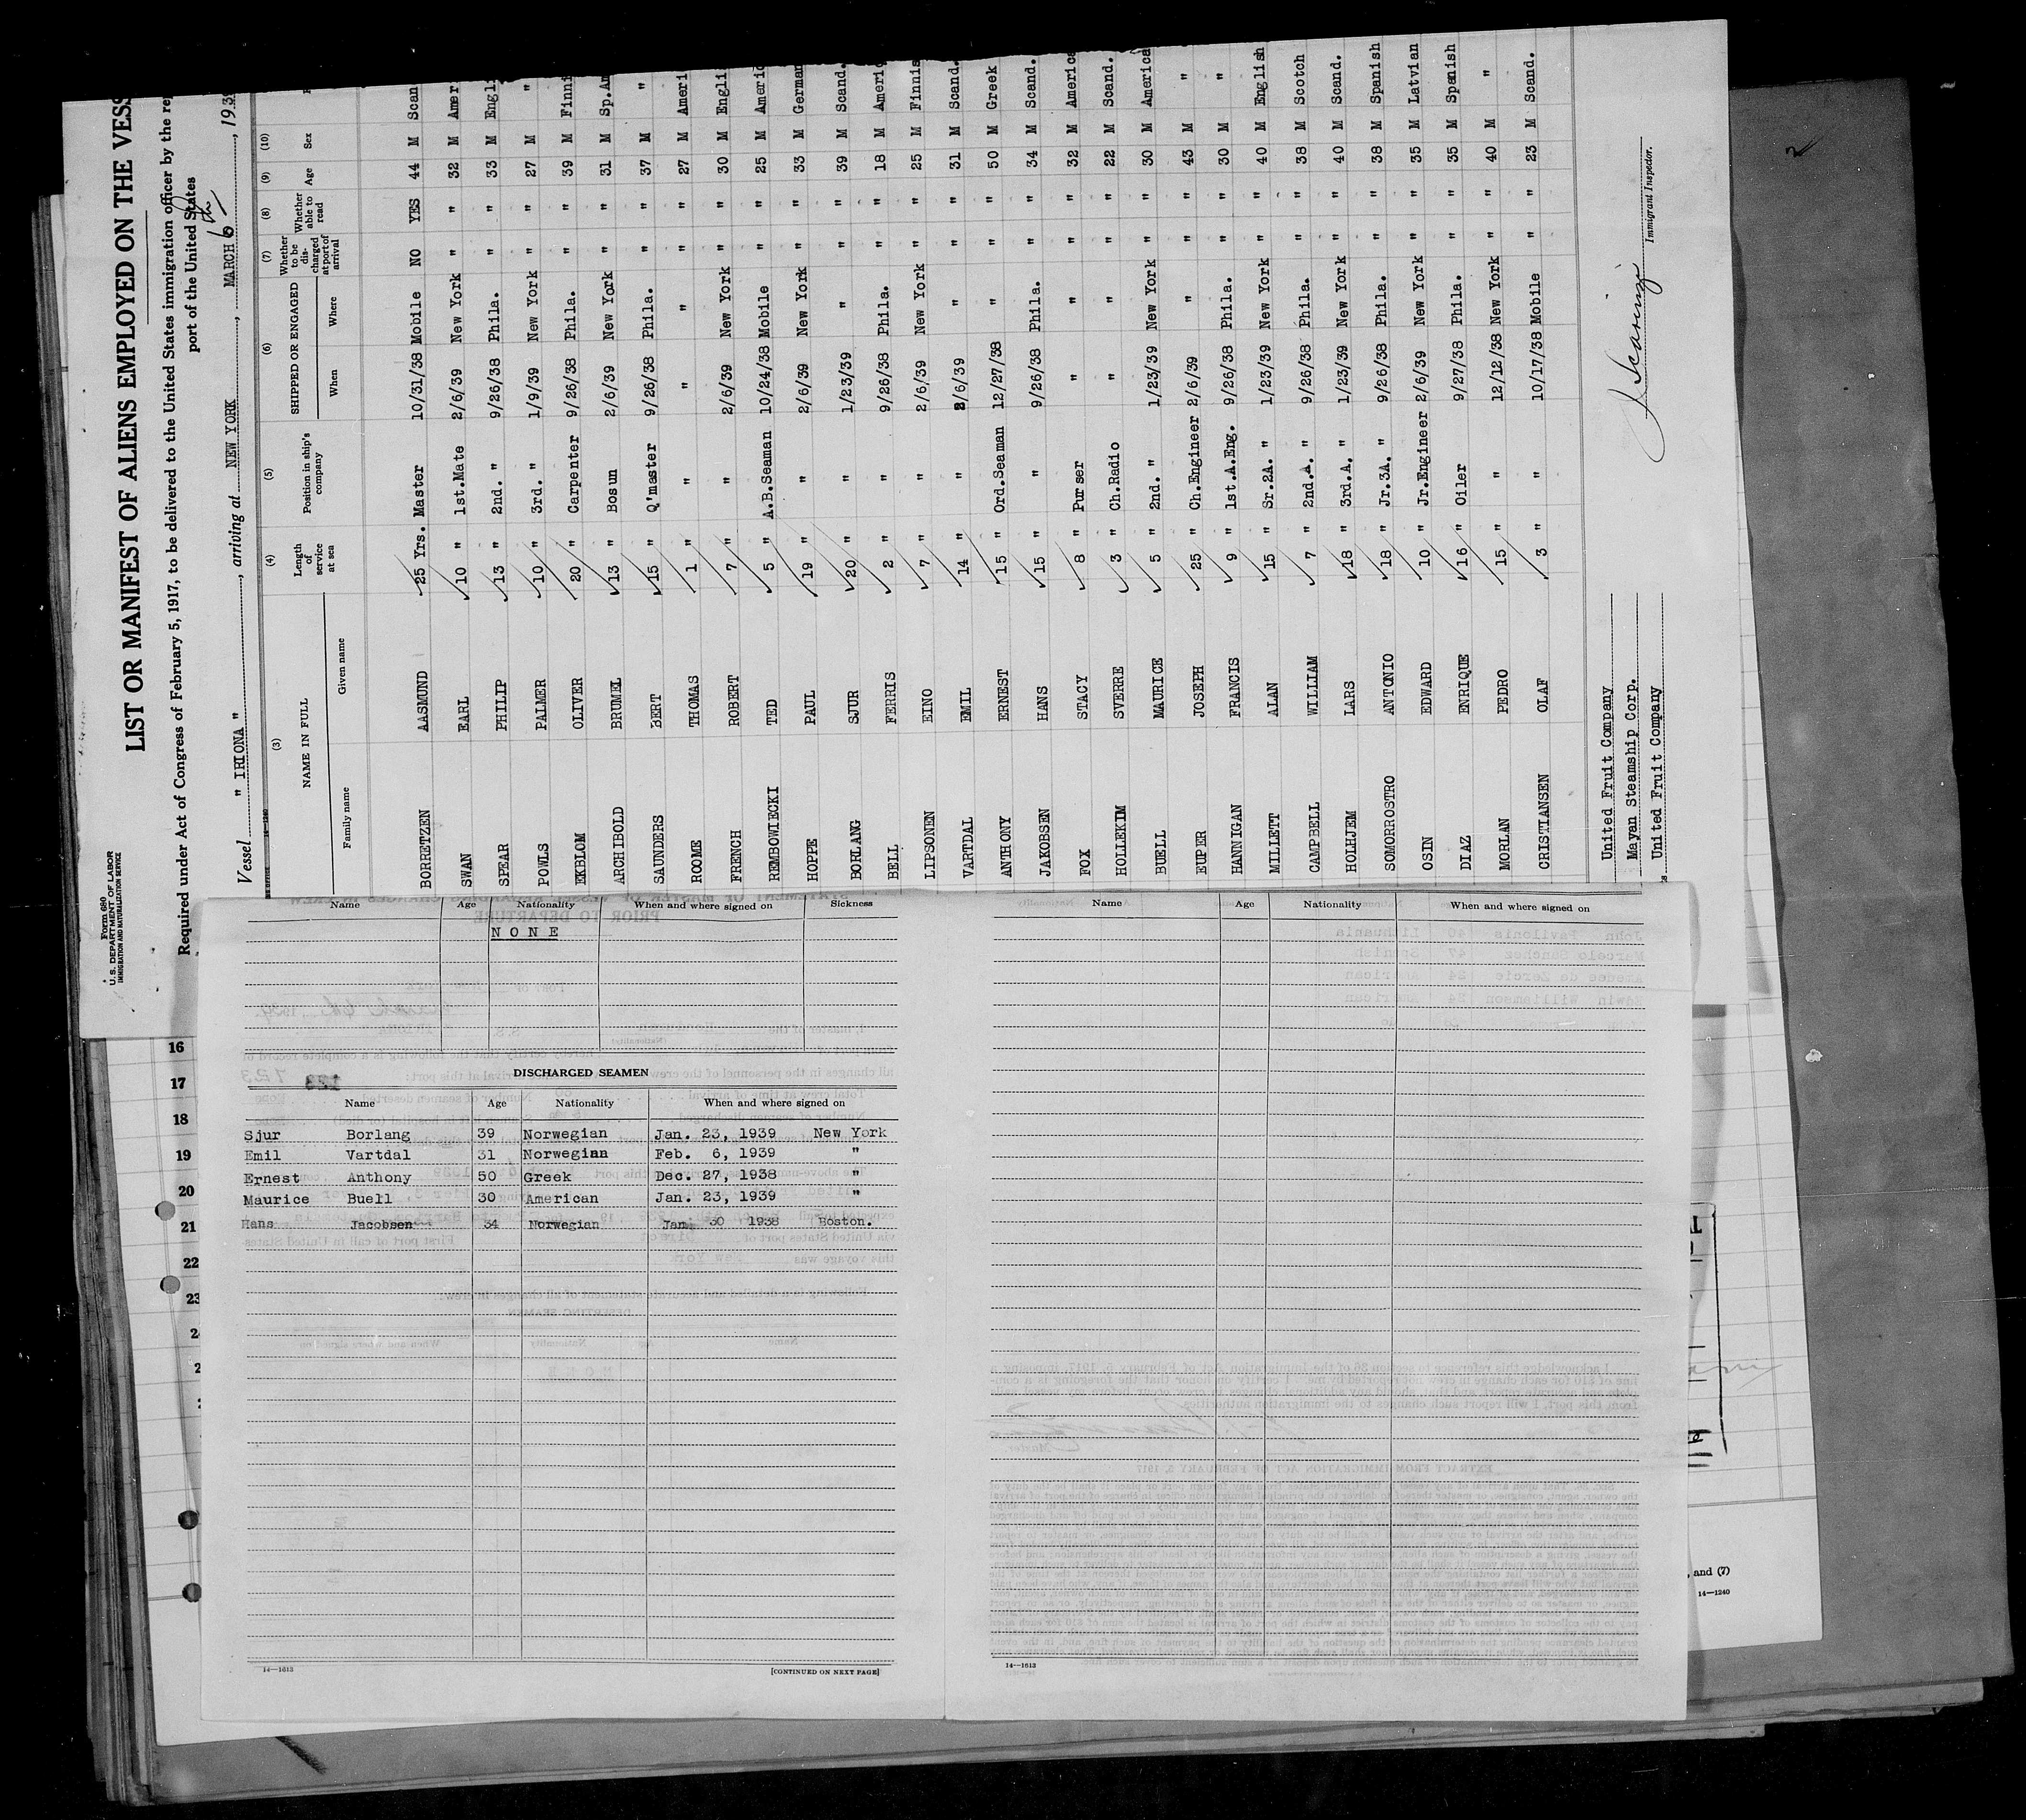 Form 680
U. S. DEPARTMENT OF LABOR
IMMIGRATION AND NATURALIZATION SERVICE
LIST OR MANIFEST OF ALIENS EMPLOYED ON THE VESS
Required under Act of Congress of February 5, 1917, to be delivered to the United States immigration officer by the re
port of the United States
Vessel " IRIONA ", arriving at NEW YORK, MARCH 6th, 193
(3) (4) (5) (6) (7) (8) (9) (10)
NAME IN FULL Length of service at sea Position in ship's company SHIPPED OR ENGAGED Whether to be discharged at port of arrival Whether able to read Age Sex
Family name Given name When Where
BORRETZEN AASMUND 25 Yrs. Master 10/31/38 Mobile NO YES 44 M Scan
SWAN EARL 10 " 1st.Mate 2/6/39 New York " " 32 M Amer
SPEAR PHILIP 13 " 2nd. " 9/26/38 Phila. " " 33 M Engl
POWLS PALMER 10 " 3rd. " 1/9/39 New York " " 27 M "
EKBLOM OLIVER 20 " Carpenter 9/26/38 Phila. " " 39 M Finni
ARCHIBOLD BRUMEL 13 " Bosun 2/6/39 New York " " 31 M Sp.Am
SAUNDERS BERT 15 " Q'master 9/26/38 Phila. " " 37 M "
ROOME THOMAS 1 " " " " " " 27 M Ameri
FRENCH ROBERT 7 " " 2/6/39 New York " " 30 M Engli
REMBOWIECKI TED 5 " A.B.Seaman 10/24/38 Mobile " " 25 M Americ
HOPPE PAUL 19 " " 2/6/39 New York " " 33 M German
BORLANG SJUR 20 " " 1/23/39 " " " 39 M Scand.
BELL FERRIS 2 " " 9/26/38 Phila. " " 18 M Americ
LIPSONEN EINO 7 " " 2/6/39 New York " " 25 M Finnis
VARTDAL EMIL 14 " " 2/6/39 " " " 31 M Scand.
ANTHONY ERNEST 15 " Ord.Seaman 12/27/38 " " " 50 M Greek
JAKOBSEN HANS 15 " " 9/26/38 Phila. " " 34 M Scand.
FOX STACY 8 " Purser " " " " 32 M America
HOLLEKIM SVERRE 3 " Ch.Radio " " " " 22 M Scand.
BUELL MAURICE 5 " 2nd. " 1/23/39 New York " " 30 M America
EUPER JOSEPH 25 " Ch.Engineer 2/6/39 " " " 43 M "
HANNIGAN FRANCIS 9 " 1st.A.Eng. 9/26/38 Phila. " " 30 M "
MILLETT ALAN 15 " Sr.2A. " 1/23/39 New York " " 40 M English
CAMPBELL WILLIAM 7 " 2nd.A. " 9/26/38 Phila. " " 38 M Scotch
HOLHJEM LARS 18 " 3rd.A. " 1/23/39 New York " " 40 M Scand.
SOMORROSTRO ANTONIO 18 " Jr.3A. " 9/26/38 Phila. " " 38 M Spanish
OSIN EDWARD 10 " Jr.Engineer 2/6/39 New York " " 35 M Latvian
DIAZ ENRIQUE 16 " Oiler 9/27/38 Phila. " " 35 M Spanish
MORLAN PEDRO 15 " " 12/12/38 New York " " 40 M "
CRISTIANSEN OLAF 3 " " 10/17/38 Mobile " " 23 M Scand.
United Fruit Company
Mayan Steamship Corp.
United Fruit Company
Immigrant Inspector.
Name Age Nationality When and where signed on Sickness
NONE
DISCHARGED SEAMEN
Name Age Nationality When and where signed on
Sjur Borlang 39 Norwegian Jan. 23, 1939 New York
Emil Vartdal 31 Norwegian Feb. 6, 1939 "
Ernest Anthony 50 Greek Dec. 27, 1938 "
Maurice Buell 30 American Jan. 23, 1939 "
Hans Jacobsen 34 Norwegian Jan. 30 1938 Boston.
14—1613 [CONTINUED ON NEXT PAGE]
Name Age Nationality When and where signed on
14—1613
16
17
18
19
20
21
22
23
, and (7)
14—1240